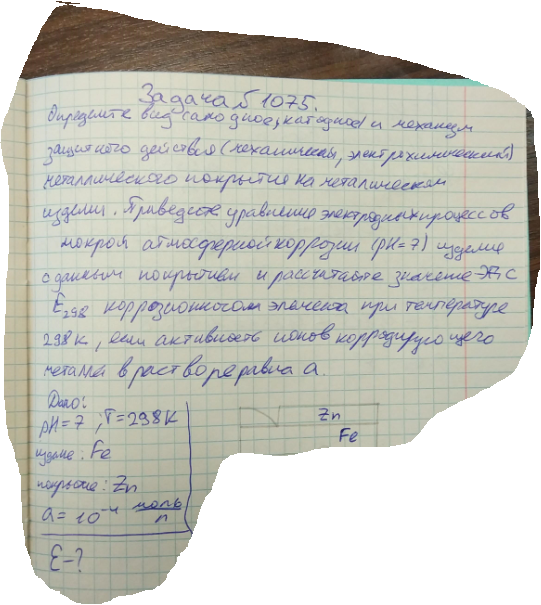 Задача №1075.
Определите вид (анодное, катодное) и механизм
защитного действия (механический, электрохимический)
металлического покрытие на металическом
изделии. Приведите уравнение электродных процессов
мокрой атмосферной коррозии (pH=7) изделие
с данным покрытием и рассчитайте значение ЭДС
E298 коррозионного элемента при температуре
298К, если активность ионов корродирующего
металла в растворе равна а.
Дано:
pH=7, T=298К
изделие: Fe
покрытие: Zn
a = 10⁻⁴ моль/л
E-?
Zn
Fe